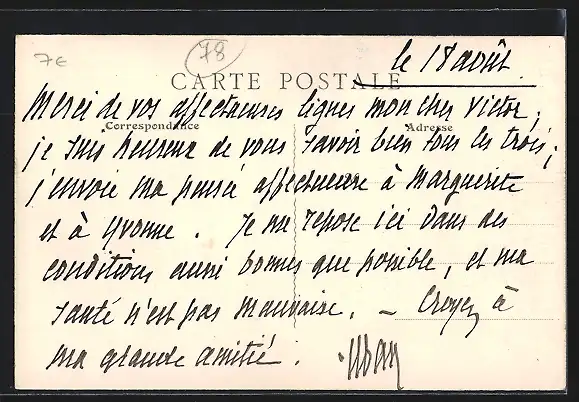 7€
78
le 18 août.
CARTE POSTALE
Merci de vos affectueuses lignes mon cher Victor,
Correspondance
Adresse
je suis heureux de vous savoir bien tous les trois;
j'envoie ma pensée affectueuse à Marguerite
et à Yvonne. Je me repose ici dans des
conditions aussi bonnes que possible, et ma
santé n'est pas mauvaise. – Croyez à
ma grande amitié.